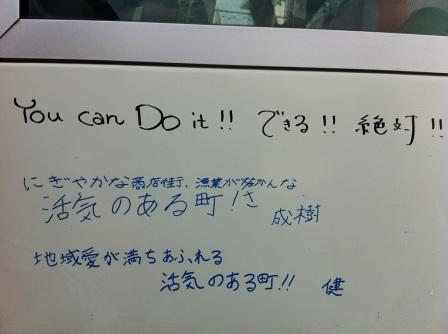 You can Do it!! できる!! 絶対!!
にぎやかな商店街、漁業がさかんな
活気のある町!さ
成樹
地域愛が満ちあふれる
活気のある町!! 健